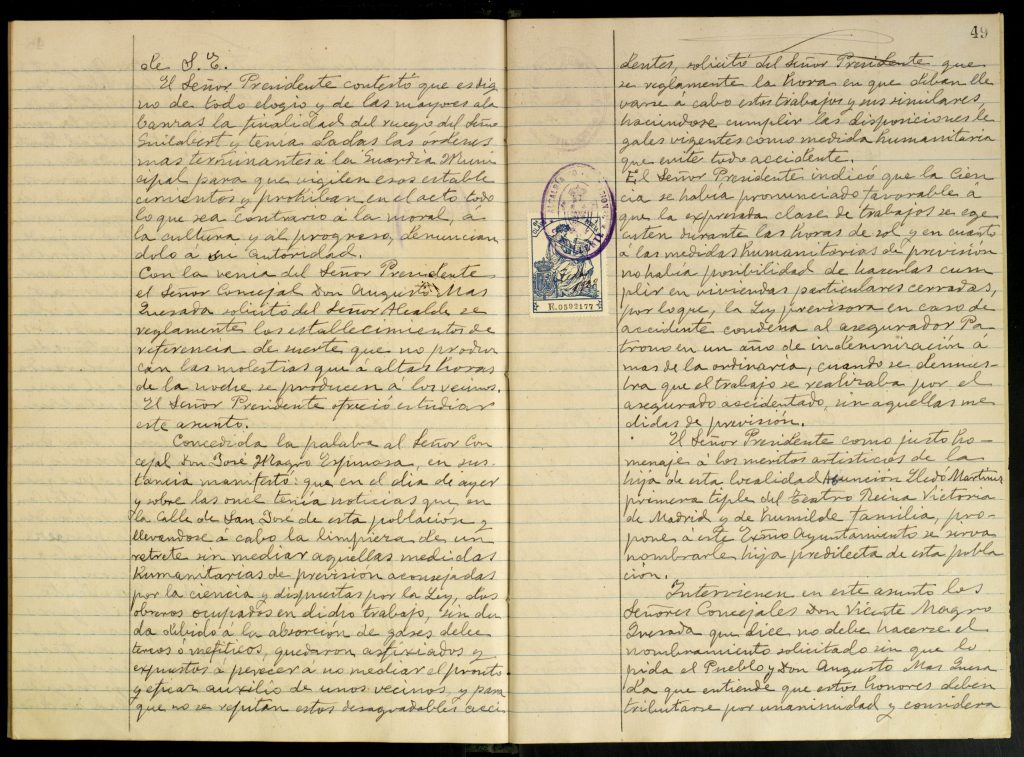 de S. E.
El Señor Presidente contestó que es dig
no de todo elogio y de las mayores ala
banzas la finalidad del ruego del Señor
Guilabert y tenia dadas las órdenes
mas terminantes á la Guardia Muni
cipal para que vigilen esos estable
cimientos y prohiban en el acto todo
lo que sea contrario á la moral, á
la cultura y al progreso, denuncian
dolo á su autoridad.
Con la venia del Señor Presidente
el Señor Concejal Don Augusto Mas
Quesada solicitó del Señor Alcalde se
reglamente los establecimientos de
referencia de suerte que no produz
can las molestias que á altas horas
de la noche se producen á los vecinos.
El Señor Presidente ofreció estudiar
este asunto.
Concedida la palaba al Señor Con
cejal Don José Magro Espinosa, en sus
tancia manifestó: que en el dia de ayer
y sobre las once tenía noticias que en
la Calle de San José de esta población y
llevandose á cabo la limpieza de un
retrete sin mediar aquellas medidas
humanitarias de previsión aconsejadas
por la ciencia y dispuestas por la Ley, dos
obreros ocupados en dicho trabajo, sin du
da debido á la absorción de gases dele
tereos ó mefíticos, quedaron asfixiados y
expuestos á perecer á no mediar el pronto
y eficaz auxilio de unos vecinos, y para
que no se repitan estos desagradables acci
49
dentes, solicitó del Señor Presidente que
se reglamente la hora en que deban lle
varse á cabo estos trabajos y sus similares,
haciendose cumplir las disposiciones le
gales vigentes como medida humanitaria
que evite todo accidente.
El Señor Presidente indicó que la Cien
cia se había pronunciado favorable á
que la expresada clase de trabajos se eje
cuten durante las horas de sol y en cuanto
á las medidas humanitarias de previsión
no habia posibilidad de hacerlas cum
plir en viviendas particulares cerradas,
por lo que, la Ley previsora en caso de
accidente condena al asegurador Pa
trono en un año de indemnización á
mas de la ordinaria, cuando se demues-
tra que el trabajo se realizaba por el
asegurado accidentado, sin aquellas me
didas de previsión.
El Señor Presidente como justo ho-
menaje á los meritos artisticos de la
hija de esta localidad Asunción Lledó Martinez
primera tiple del Teatro Reina Victoria
de Madrid y de humilde familia, pro-
pone á este Exmo Ayuntamiento se sirva
nombrarle hija predilecta de esta pobla
ción.
Intervienen en este asunto los
Señores Concejales Don Vicente Magro
Quesada que dice no debe hacerse el
nombramiento solicitado sin que lo
pida el Pueblo y Don Augusto Mas Quesa
da que entiende que estos honores deben
tributarse por unanimidad y considera
E.0592177